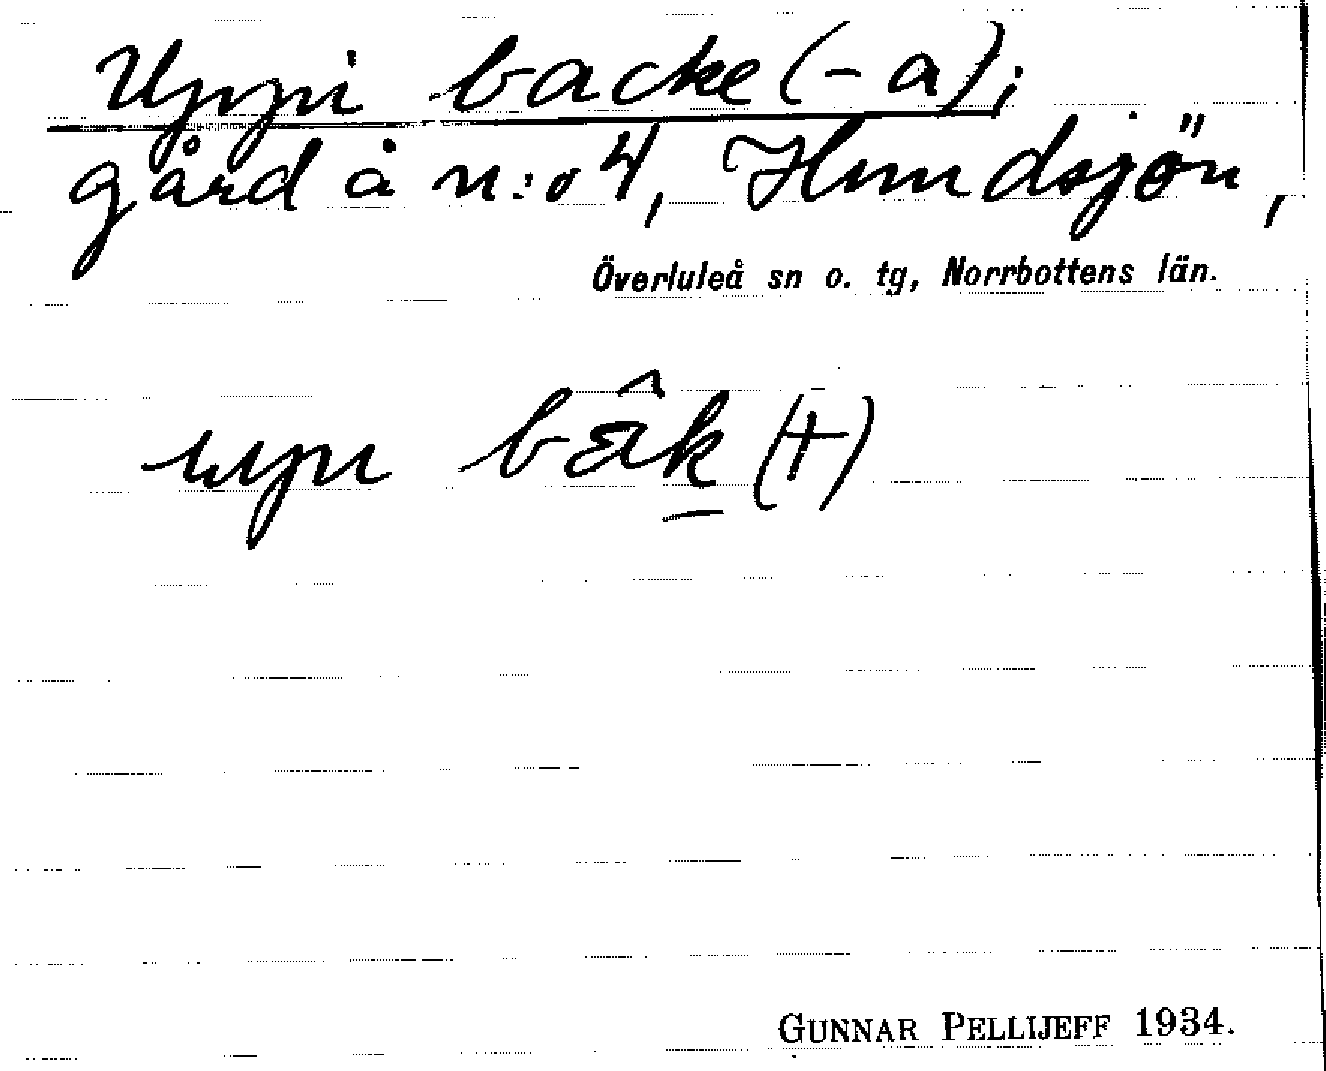 Uppi backe (-a);
gård å n:o 4, Hundsjön,
Överluleå sn o. tg, Norrbottens län.
upı bâk (+)
GUNNAR PELLIJEFF 1934.